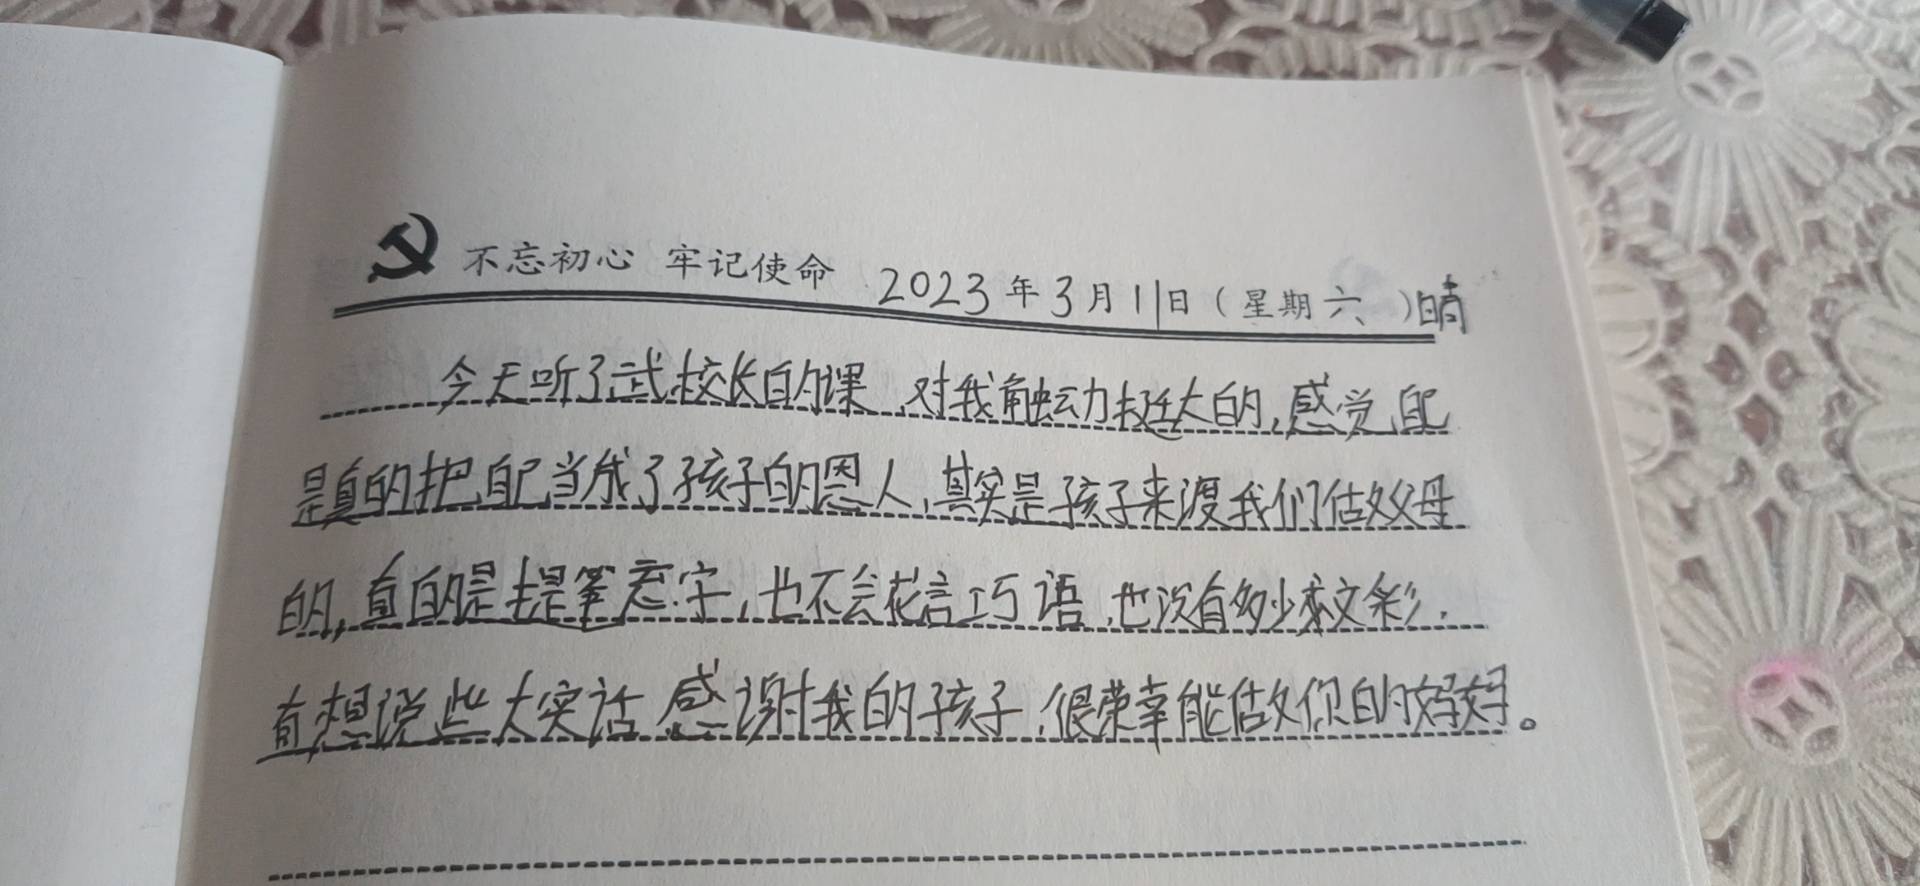 不忘初心 牢记使命 2023年3月11日（星期六）晴
今天听了武校长的课 对我触动挺大的,感觉自己
是真的把自己当成了孩子的恩人,其实是孩子来渡我们做父母
的,真的是提笔忘字,也不会花言巧语,也没有多少文彩,
有想说些大实话 感谢我的孩子,很荣幸能做你的妈妈。